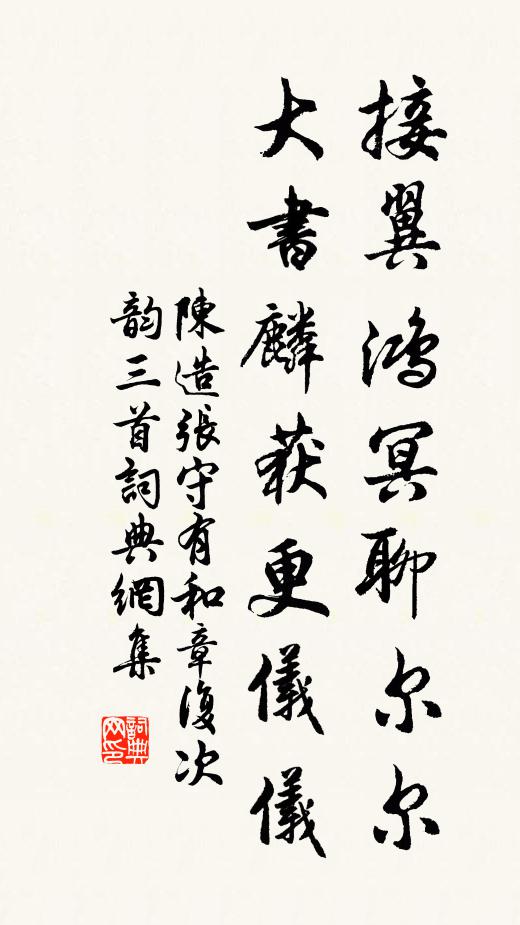 接翼鴻冥聊尔尔
大書麟获更儀儀
陳造張守有和章復次
韵三首詞典網集
詞典网印